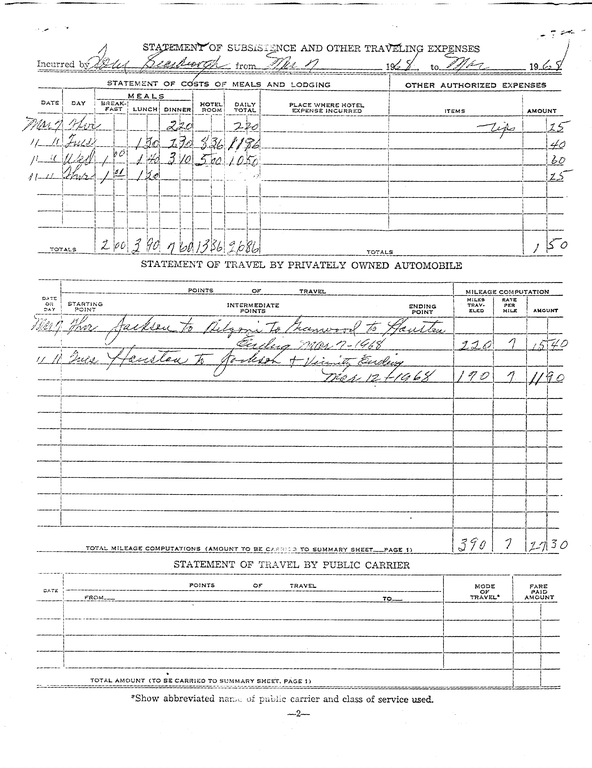 STATEMENT OF SUBSISTENCE AND OTHER TRAVELING EXPENSES
Incurred by Scarbrough from Mar 7 1968 to Mar 1968
STATEMENT OF COSTS OF MEALS AND LODGING OTHER AUTHORIZED EXPENSES
DATE DAY MEALS BREAKFAST LUNCH DINNER HOTEL ROOM DAILY TOTAL PLACE WHERE HOTEL EXPENSE INCURRED ITEMS AMOUNT
Mar 7 Thur 2 20 2 20 Tips 25
" " Tues 1 30 2 30 8 36 11 96 40
" " Wed 1 00 1 40 3 10 5 00 10 50 60
" " Thur 1 00 1 20 25
TOTALS 2 00 3 90 7 60 13 36 26 86 TOTALS 1 50
STATEMENT OF TRAVEL BY PRIVATELY OWNED AUTOMOBILE
POINTS OF TRAVEL MILEAGE COMPUTATION
DATE OR DAY STARTING POINT INTERMEDIATE POINTS ENDING POINT MILES TRAVELED RATE PER MILE AMOUNT
Mar 7 Thur Jackson to Belzoni to Greenwood to Houston
Ending Mar 7-1968 220 7 15 40
" " Tues Houston to Jackson + Vicinity Ending
Mar 12-1968 170 7 11 90
TOTAL MILEAGE COMPUTATIONS (AMOUNT TO BE CARRIED TO SUMMARY SHEET__PAGE 1) 390 7 27 30
STATEMENT OF TRAVEL BY PUBLIC CARRIER
DATE POINTS OF TRAVEL MODE OF TRAVEL* FARE PAID AMOUNT
FROM__ TO__
TOTAL AMOUNT (TO BE CARRIED TO SUMMARY SHEET, PAGE 1)
*Show abbreviated name of public carrier and class of service used.
—2—